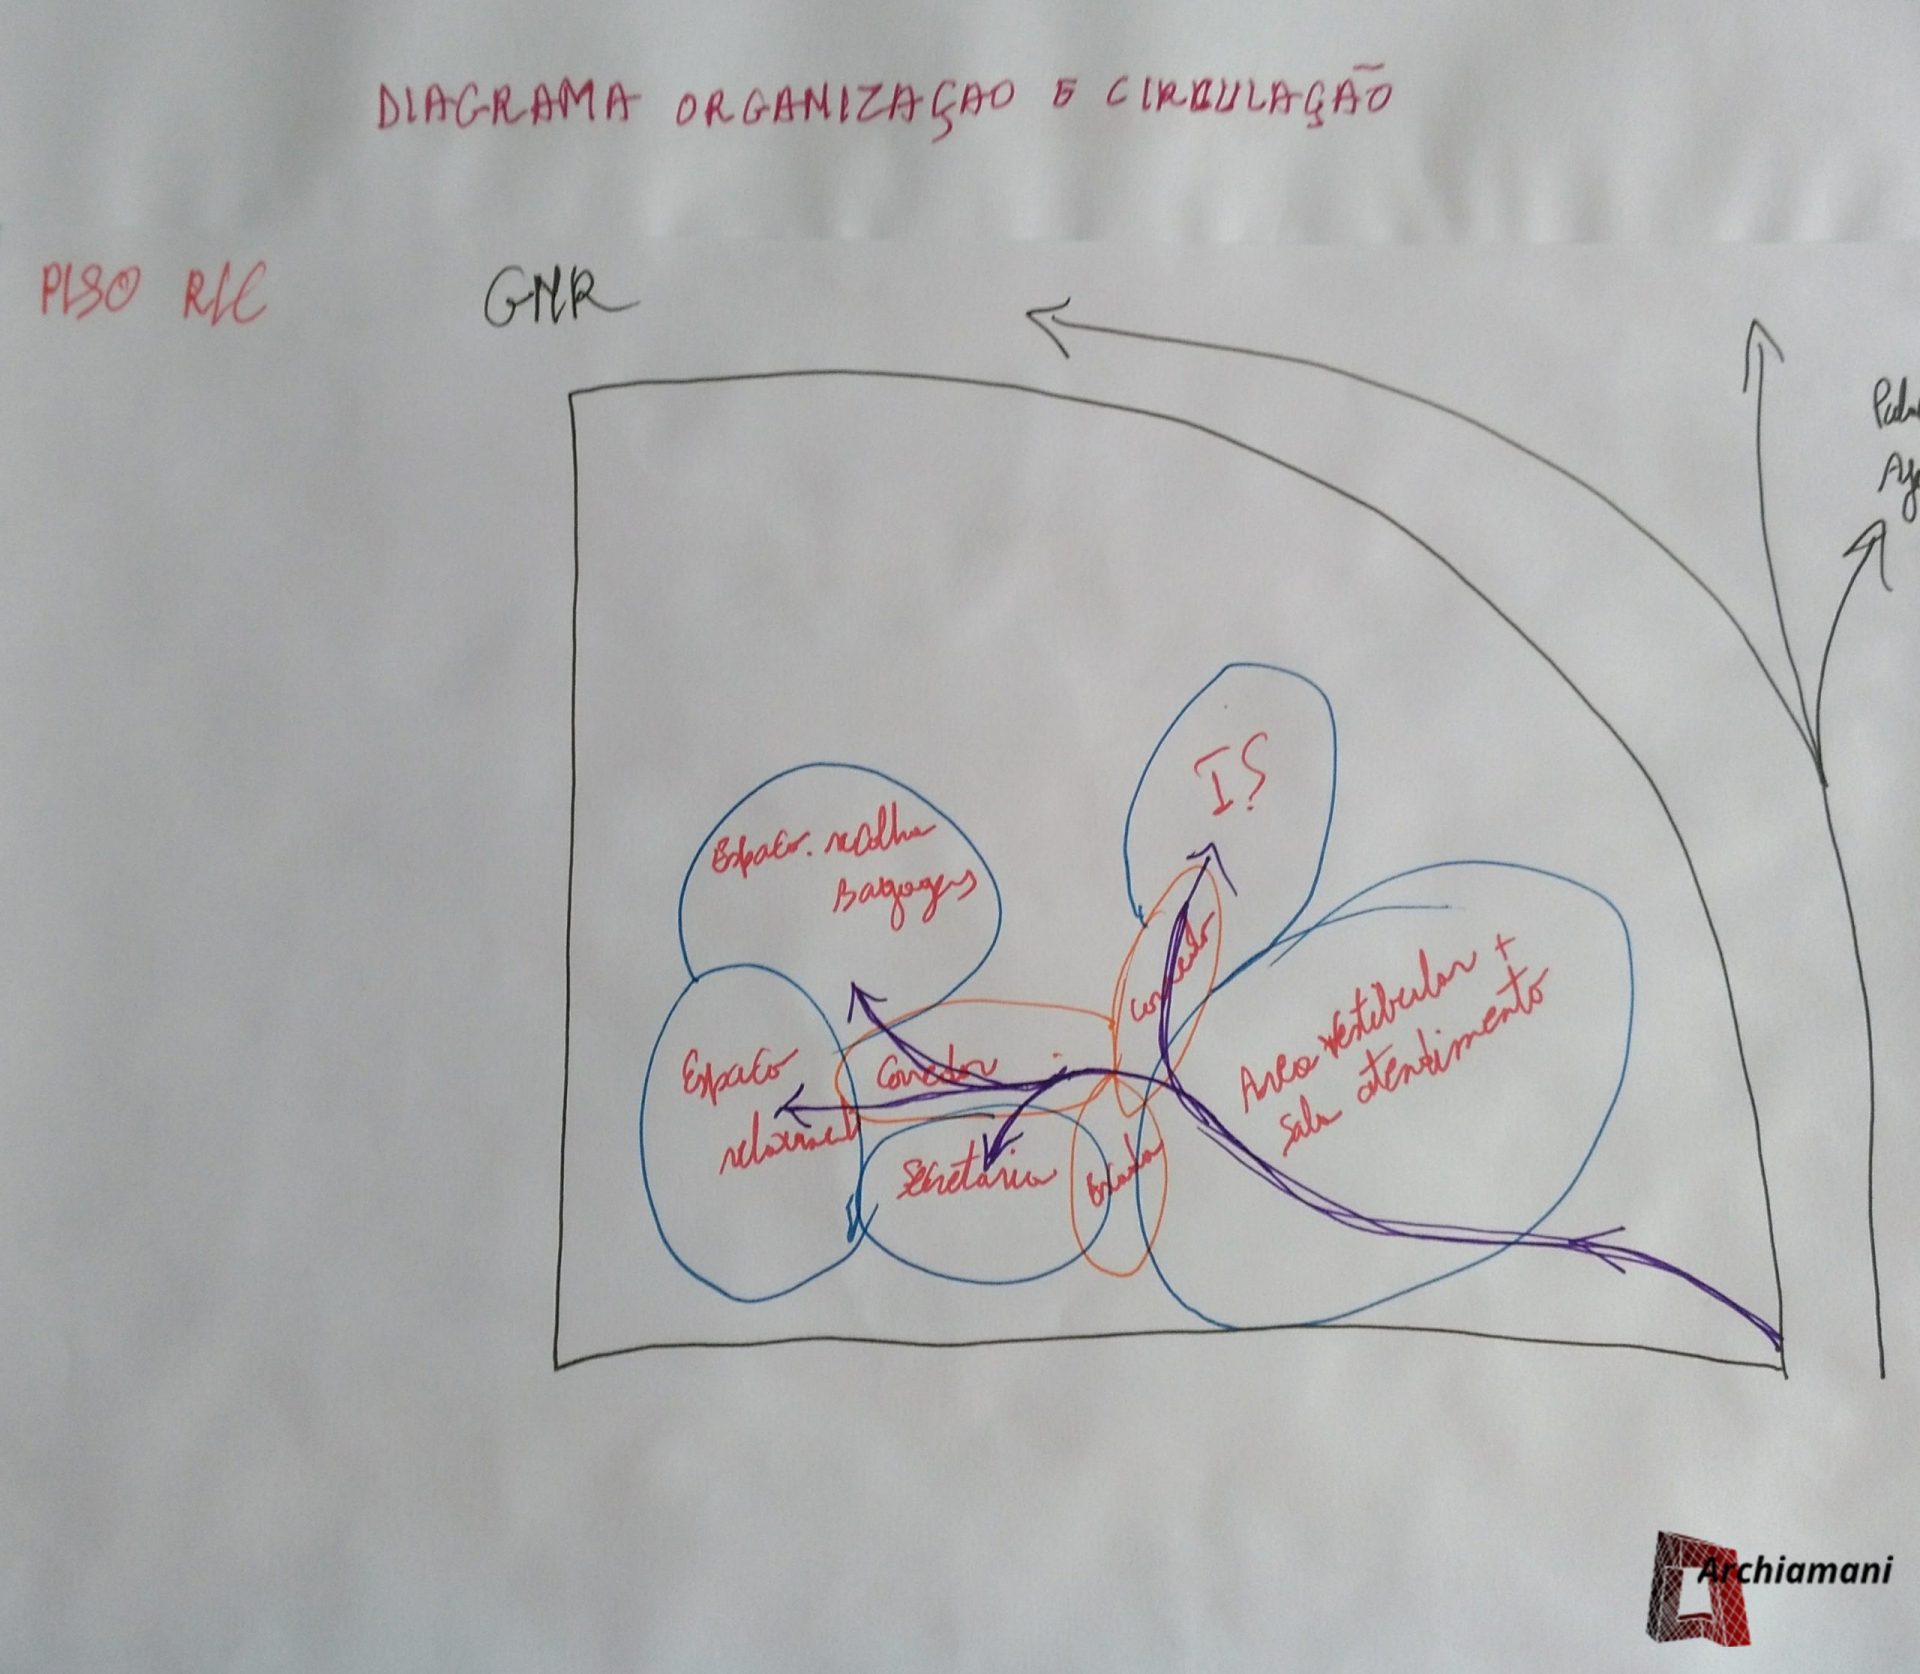 DIAGRAMA ORGANIZAÇAO E CIRCULAÇÃO
PISO R/C
GNR
IS
Espaço. recolha
Bagagens
Corredor
Area vestibular +
Sala atendimento
Espaço
Corredor
Secretaria
Escada
Archiamani